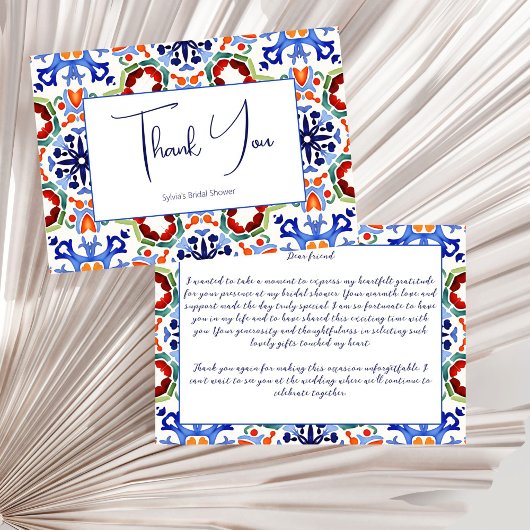 Thank You
Sylvia's Bridal Shower
Dear friend
I wanted to take a moment to express my heartfelt gratitude
for your presence at my bridal shower. Your warmth, love and
support made the day truly special. I am so fortunate to have
you in my life and to have shared this exciting time with
you. Your generosity and thoughtfulness in selecting such
lovely gifts touched my heart.
Thank you again for making this occasion unforgettable. I
can't wait to see you at the wedding where we'll continue to
celebrate together.